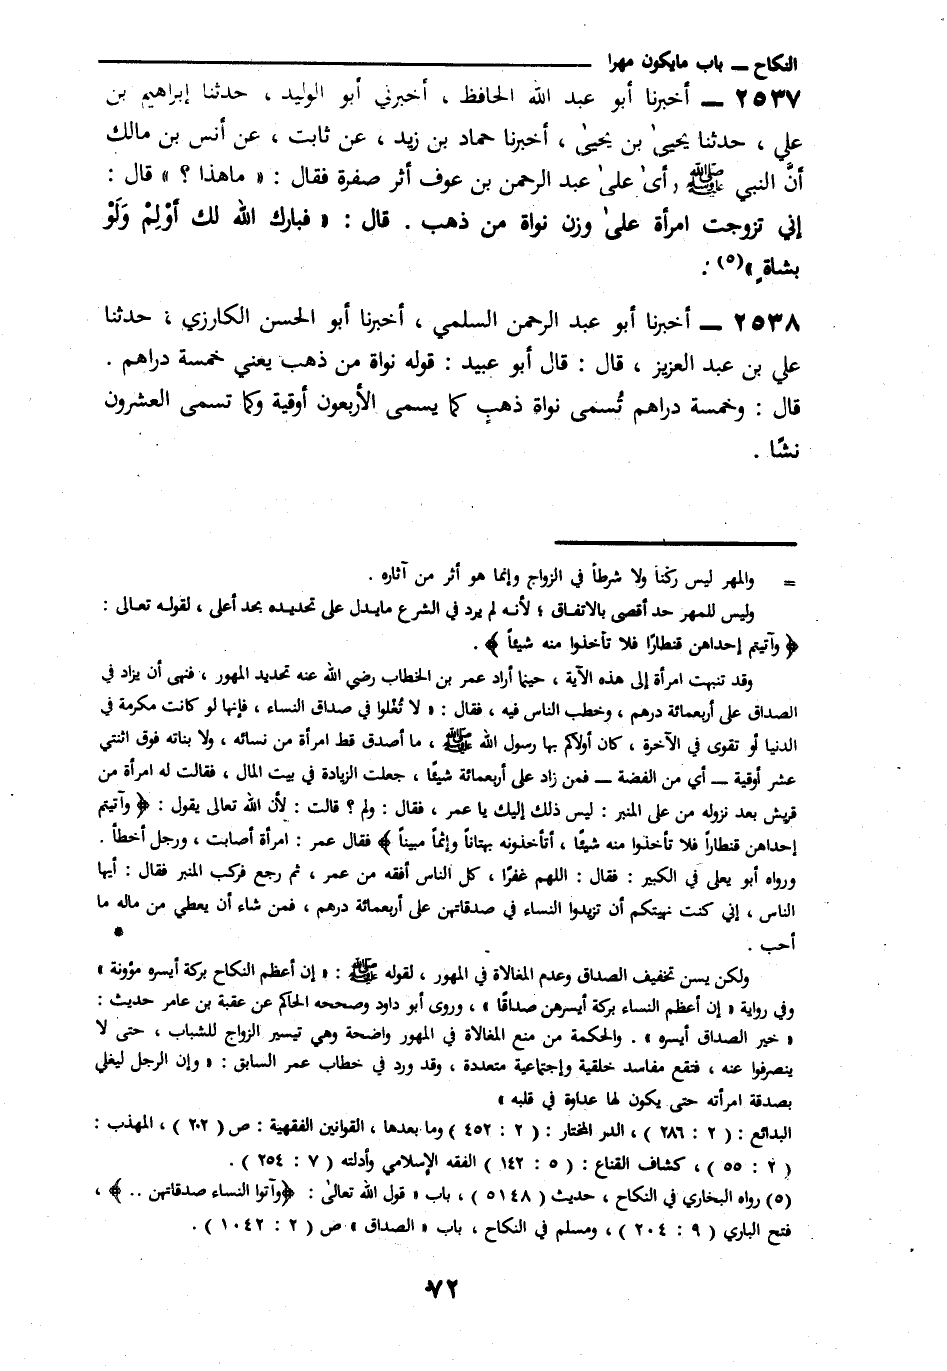 النكاح ــ باب مايكون مهرا
٢٥٣٧ ــ أخبرنا أبو عبد الله الحافظ ، أخبرني أبو الوليد ، حدثنا إبراهيم بن
علي ، حدثنا يحيىٰ بن يحيىٰ ، أخبرنا حماد بن زيد ، عن ثابت ، عن أنس بن مالك
أنَّ النبي ﷺ رأىٰ علىٰ عبد الرحمن بن عوف أثر صفرة فقال : « ماهذا ؟ » قال :
إني تزوجت امرأة علىٰ وزن نواة من ذهب . قال : « فبارك الله لك أوْلِمْ وَلَوْ
بشاةٍ »(٥) .
٢٥٣٨ ــ أخبرنا أبو عبد الرحمن السلمي ، أخبرنا أبو الحسن الكارزي ، حدثنا
علي بن عبد العزيز ، قال : قال أبو عبيد : قوله نواة من ذهب يعني خمسة دراهم .
قال : وخمسة دراهم تُسمى نواة ذهبٍ كما يسمى الأربعون أوقية وكما تسمى العشرون
نشًا .
= والمهر ليس ركناً ولا شرطاً في الزواج وإنما هو أثر من آثاره .
وليس للمهر حد أقصى بالاتفاق ؛ لأنه لم يرد في الشرع مايدل على تحديده بحد أعلى ، لقوله تعالى :
﴿ وآتيتم إحداهن قنطارًا فلا تأخذوا منه شيئاً ﴾ .
وقد تنبهت امرأة إلى هذه الآية ، حينما أراد عمر بن الخطاب رضي الله عنه تحديد المهور ، فنهى أن يزاد في
الصداق على أربعمائة درهم ، وخطب الناس فيه ، فقال : « لا تُغْلوا في صداق النساء ، فإنها لو كانت مكرمة في
الدنيا أو تقوى في الآخرة ، كان أولاكم بها رسول الله ﷺ ، ما أصدق قط امرأة من نسائه ، ولا بناته فوق اثنتي
عشر أوقية ــ أي من الفضة ــ فمن زاد على أربعمائة شيئًا ، جعلت الزيادة في بيت المال ، فقالت له امرأة من
قريش بعد نزوله من على المنبر : ليس ذلك إليك يا عمر ، فقال : ولم ؟ قالت : لأن الله تعالى يقول : ﴿ وآتيتم
إحداهن قنطاراً فلا تأخذوا منه شيئًا ، أتأخذونه بهتاناً وإثماً مبيناً ﴾ فقال عمر : امرأة أصابت ، ورجل أخطأ .
ورواه أبو يعلى في الكبير : فقال : اللهم غفرًا ، كل الناس أفقه من عمر ، ثم رجع فركب المنبر فقال : أيها
الناس ، إني كنت نهيتكم أن تزيدوا النساء في صدقاتهن على أربعمائة درهم ، فمن شاء أن يعطي من ماله ما
أحب .
ولكن يسن تخفيف الصداق وعدم المغالاة في المهور ، لقوله ﷺ : « إن أعظم النكاح بركة أيسره مؤونة »
وفي رواية « إن أعظم النساء بركة أيسرهن صداقًا » ، وروى أبو داود وصححه الحاكم عن عقبة بن عامر حديث :
« خير الصداق أيسره » . والحكمة من منع المغالاة في المهور واضحة وهي تيسير الزواج للشباب ، حتى لا
ينصرفوا عنه ، فتقع مفاسد خلقية وإجتماعية متعددة ، وقد ورد في خطاب عمر السابق : « وإن الرجل ليغلي
بصدقة امرأته حتى يكون لها عداوة في قلبه »
البدائع : ( ٢ : ٢٨٦ ) ، الدر المختار : ( ٢ : ٤٥٢ ) وما بعدها ، القوانين الفقهية : ص ( ٢٠٢ ) ، المهذب :
( ٢ : ٥٥ ) ، كشاف القناع : ( ٥ : ١٤٢ ) الفقه الإسلامي وأدلته ( ٧ : ٢٥٤ ) .
(٥) رواه البخاري في النكاح ، حديث ( ٥١٤٨ ) ، باب « قول الله تعالىٰ : ﴿وآتوا النساء صدقاتهن .. ﴾ ،
فتح الباري ( ٩ : ٢٠٤ ) ، ومسلم في النكاح ، باب « الصداق » ص ( ٢ : ١٠٤٢ ) .
٧٢